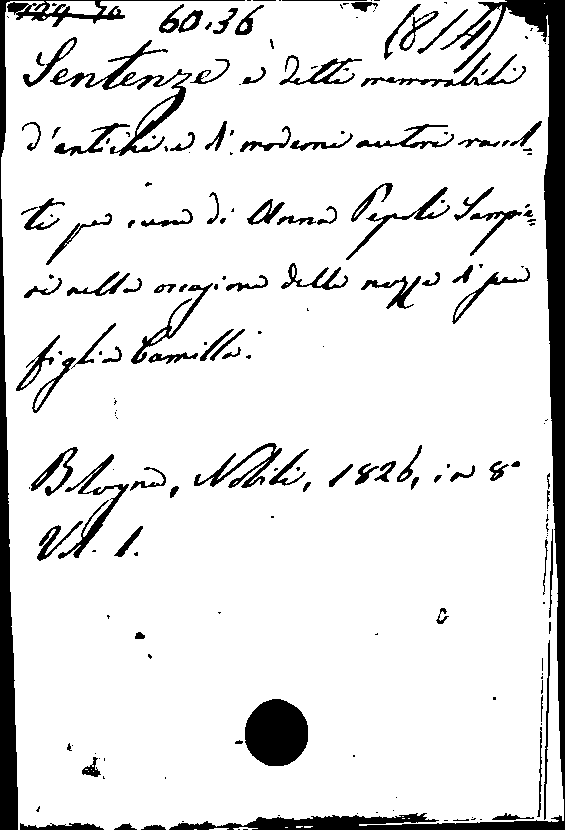 124 70 60.36 (814)
Sentenze e detti memorabili
d'antichi e di moderni autori raccol=
ti per cura di Anna Pepoli Sampie=
ri nella occasione delle nozze di sua
figlia Camilla.
Bologna, Nobili, 1826, in 8°
Vol. 1.